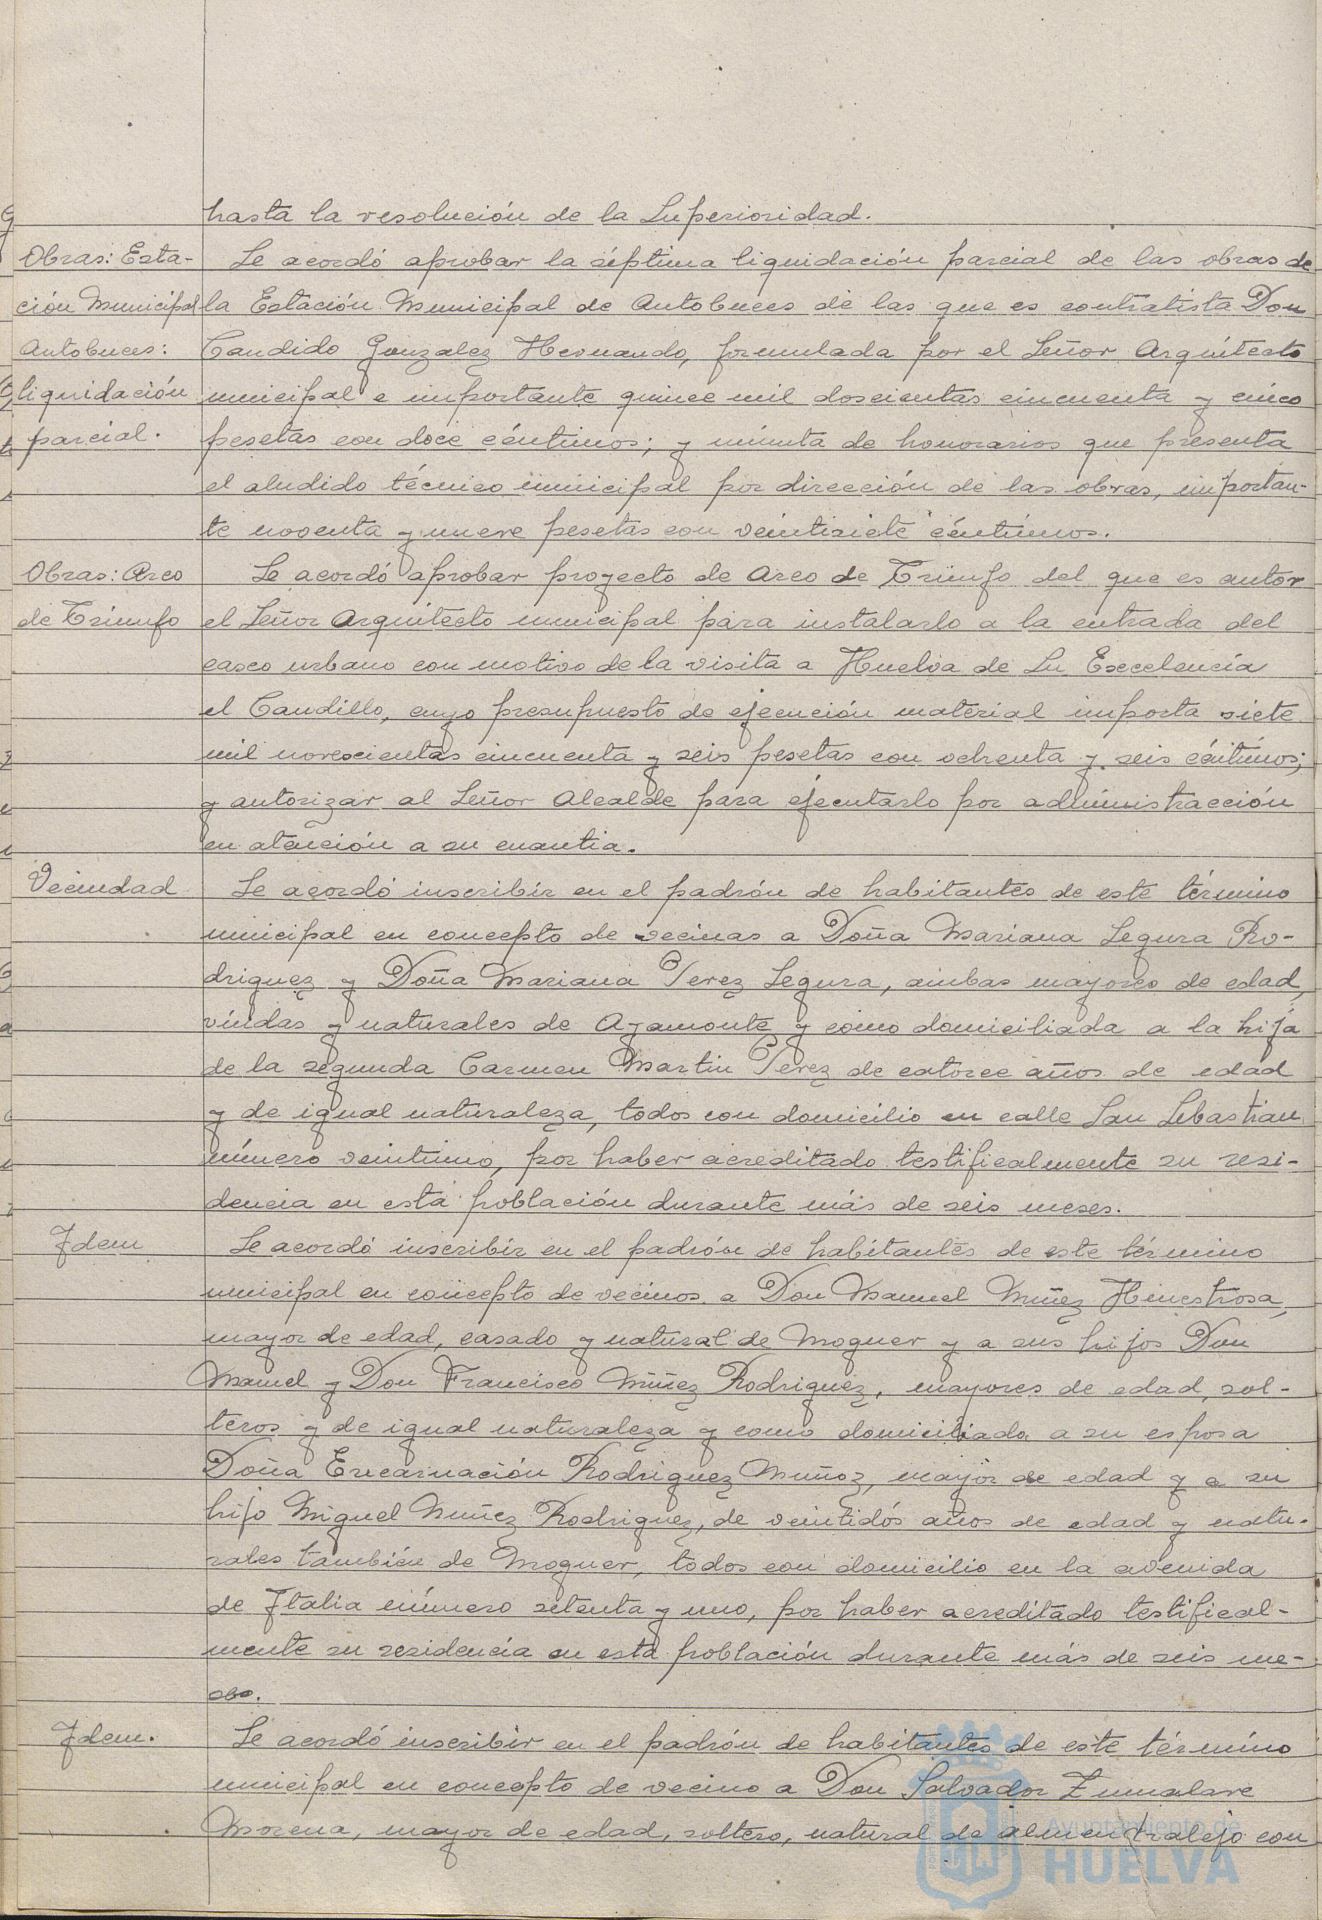 hasta la resolución de la Superioridad.
Obras: Esta-
ción Municipal
Autobuces:
liquidación
parcial.
Se acordó aprobar la séptima liquidación parcial de las obras de
la Estación Municipal de Autobuces de las que es contratista Don
Candido Gonzalez Hernando, formulada por el Señor Arquitecto
municipal e importante quince mil doscientas cincuenta y cinco
pesetas con doce céntimos; y minuta de honorarios que presenta
el aludido técnico municipal por dirección de las obras, importan-
te noventa y nueve pesetas con veintisiete céntimos.
Obras: Arco
de Triunfo
Se acordó aprobar proyecto de Arco de Triunfo del que es autor
el Señor Arquitecto municipal para instalarlo a la entrada del
casco urbano con motivo de la visita a Huelva de Su Excelencia
el Caudillo, cuyo presupuesto de ejecución material importa siete
mil novescientas cincuenta y seis pesetas con ochenta y seis céntimos;
y autorizar al Señor Alcalde para ejecutarlo por administracción
en atención a su cuantia.
Vecindad
Se acordó inscribir en el padrón de habitantes de este término
municipal en concepto de vecinas a Doña Mariana Segura Ro-
driguez y Doña Mariana Perez Segura, ambas mayores de edad,
viudas y naturales de Ayamonte y como domiciliada a la hija
de la segunda Carmen Martin Perez de catorce años de edad
y de igual naturaleza, todos con domicilio en calle San Sebastian
número veintiuno, por haber acreditado testificalmente su resi-
dencia en esta población durante más de seis meses.
Idem
Se acordó inscribir en el padrón de habitantes de este término
municipal en concepto de vecinos a Don Manuel Nuñez Hinestrosa,
mayor de edad, casado y natural de Moguer y a sus hijos Don
Manuel y Don Francisco Nuñez Rodriguez, mayores de edad, sol-
teros y de igual naturaleza y como domiciliada a su esposa
Doña Encarnación Rodriguez Muñoz, mayor de edad y a su
hijo Miguel Nuñez Rodriguez, de veintidós años de edad y natu-
rales también de Moguer, todos con domicilio en la avenida
de Italia número setenta y uno, por haber acreditado testifical-
mente su residencia en esta población durante más de seis me-
ses.
Idem.
Se acordó inscribir en el padrón de habitantes de este término
municipal en concepto de vecino a Don Salvador
Morena, mayor de edad, soltero, natural de Almendralejo con
Ayuntamiento de
HUELVA